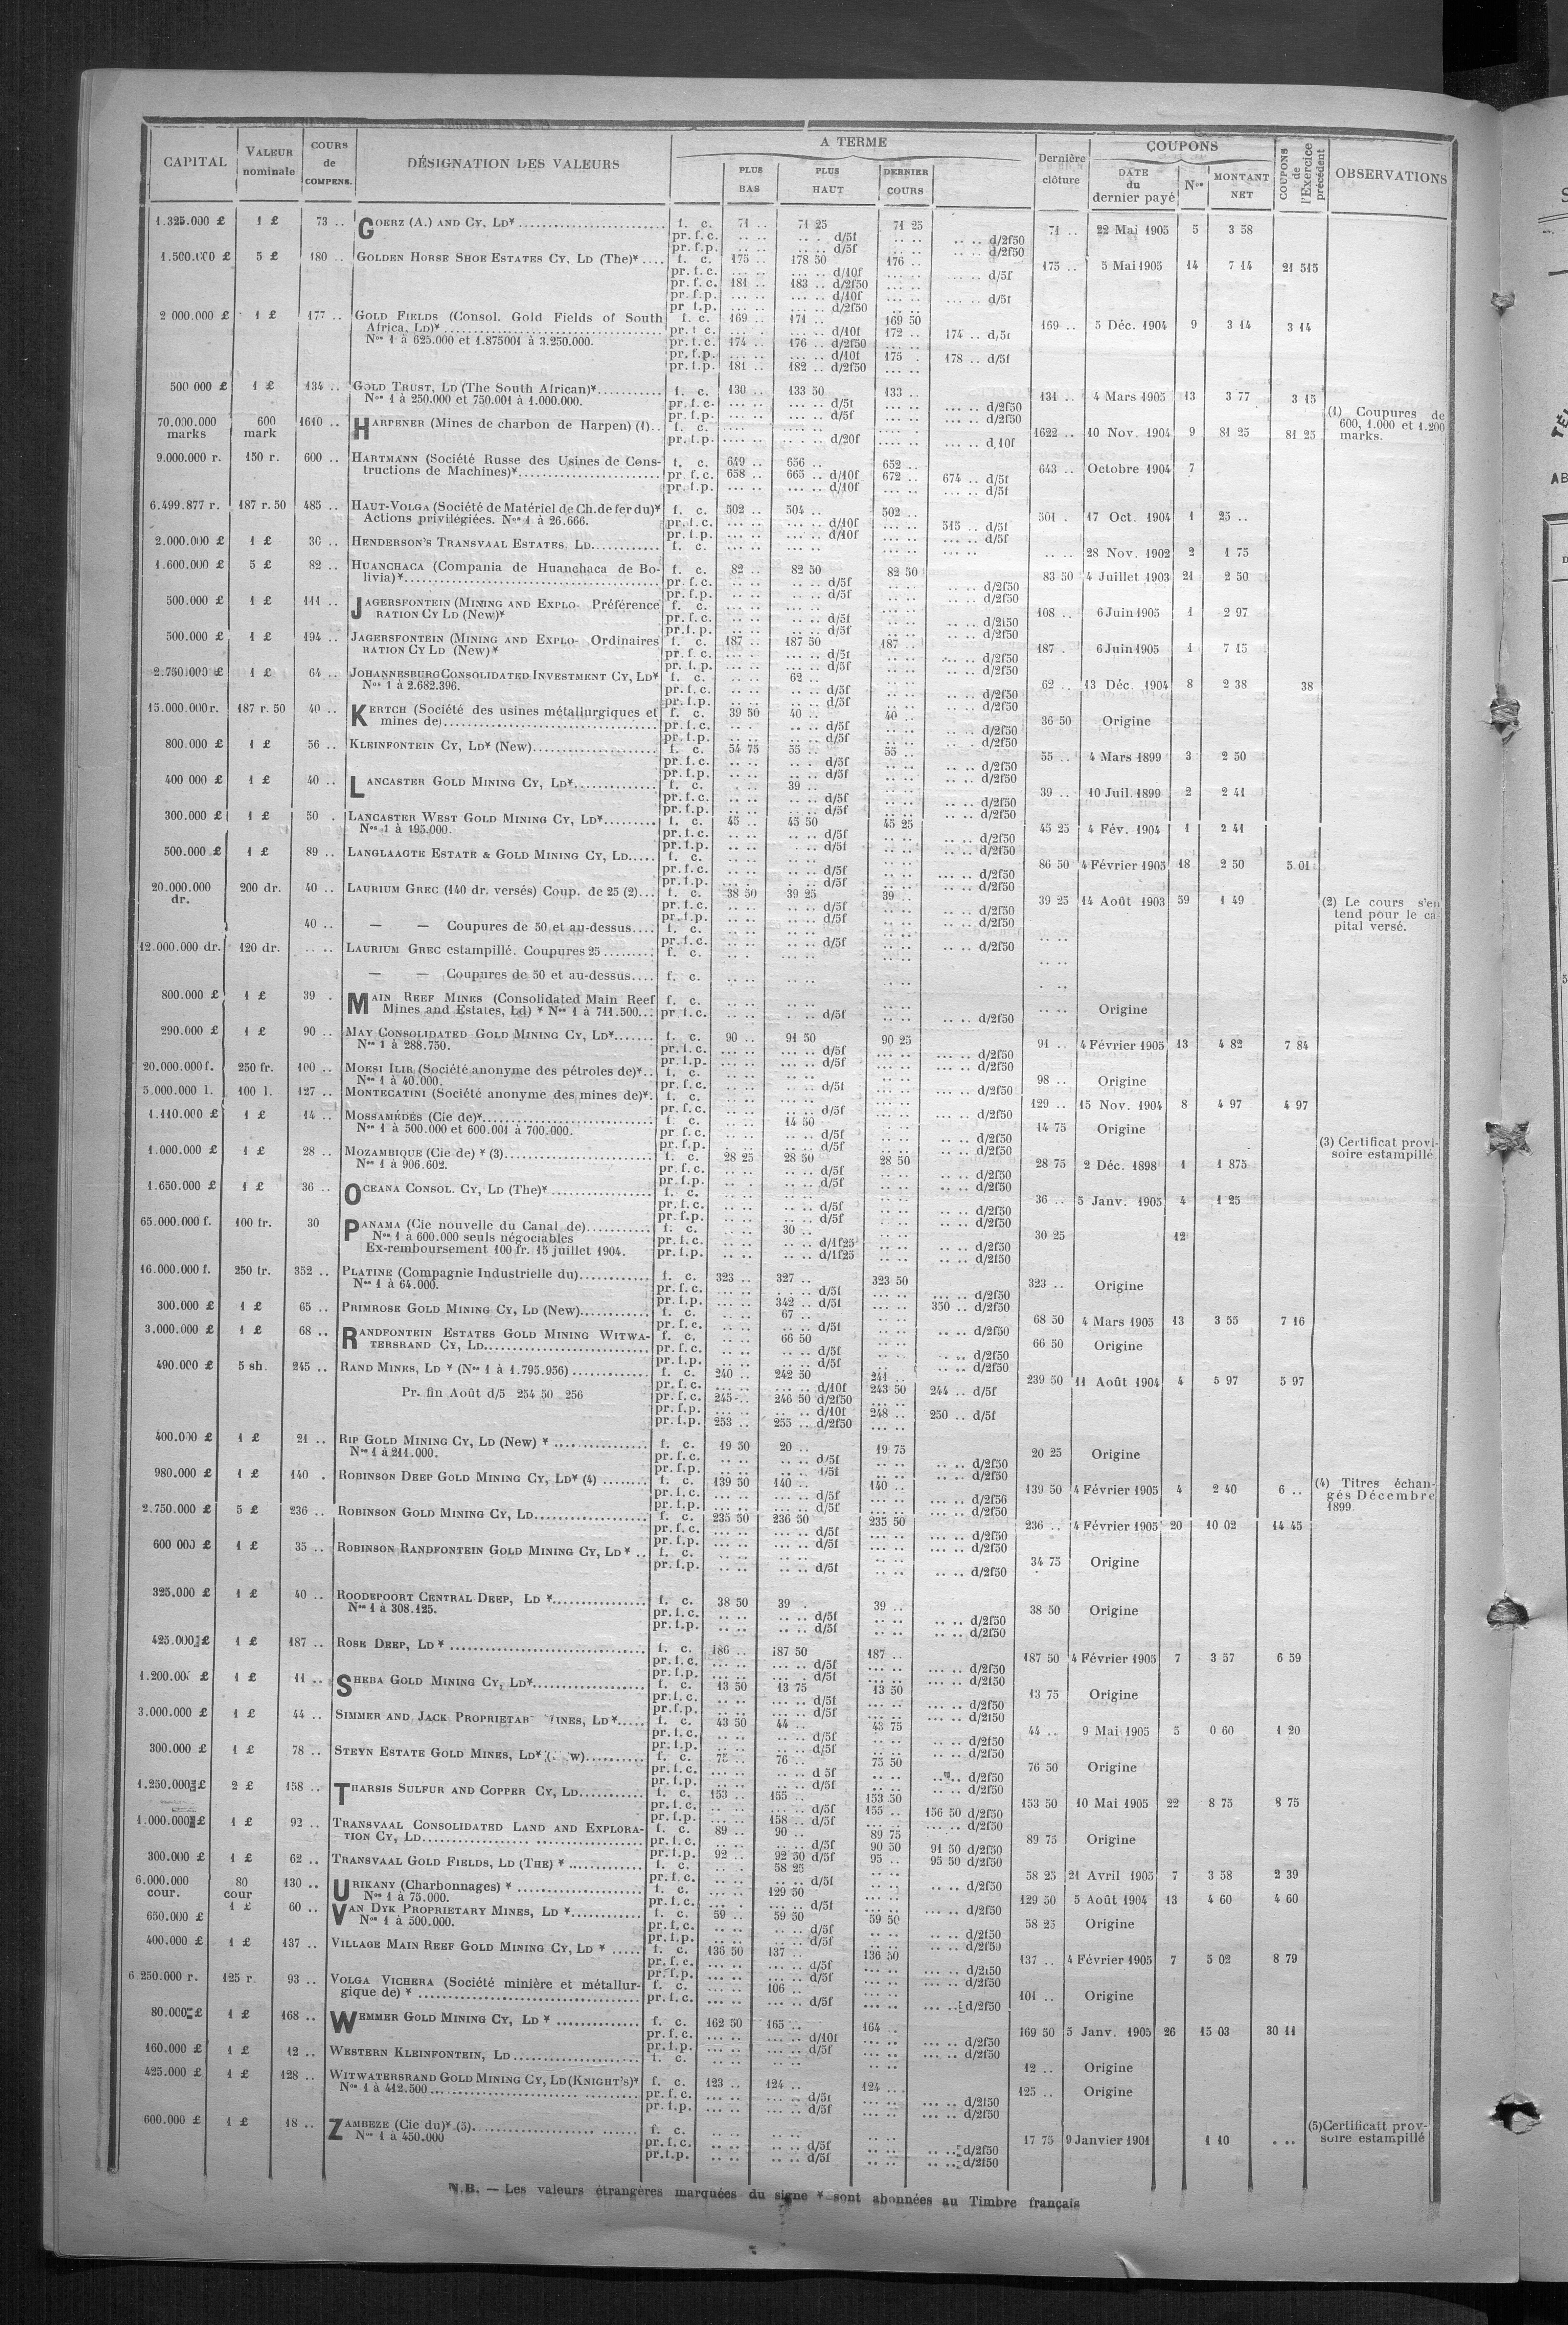 CAPITAL | VALEUR nominale | COURS de COMPENS. | DÉSIGNATION DES VALEURS | A TERME | PLUS BAS | PLUS HAUT | DERNIER COURS | Dernière clôture | COUPONS | DATE du dernier payé | Nos | MONTANT NET | COUPONS de l'Exercice précédent | OBSERVATIONS
1.325.000 £ 1 £ 73 .. GOERZ (A.) AND CY, LD* f. c. 71 .. 71 25 71 25 71 .. 22 Mai 1905 5 3 58
pr. f. c. .. .. .. .. d/5f .. .. .. .. d/2f50
pr. f.p. .. .. .. .. d/5f .. .. .. .. d/2f50
1.500.000 £ 5 £ 180 .. GOLDEN HORSE SHOE ESTATES CY, LD (The)* f. c. 175 .. 178 50 176 .. 175 .. 5 Mai 1905 14 7 14 21 515
pr. f. c. ... .. ... .. d/10f ... .. ... .. d/5f
pr. f. c. 181 .. 183 .. d/2f50
pr. f.p. ... .. ... .. d/10f ... .. ... .. d/5f
pr. f.p. ... .. ... .. d/2f50
2 000.000 £ 1 £ 177 .. GOLD FIELDS (Consol. Gold Fields of South Africa, LD)* f. c. 169 .. 171 .. 169 50 169 .. 5 Déc. 1904 9 3 14 3 14
Nos 1 à 625.000 et 1.875001 à 3.250.000.
pr. f. c. ... .. d/10f 172 .. 174 .. d/5f
pr. f. c. 174 .. 176 .. d/2f50
pr. f.p. ... .. d/10f 175 . 178 .. d/5f
pr. f.p. 181 .. 182 .. d/2f50
500 000 £ 1 £ 134 .. GOLD TRUST, LD (The South African)* f. c. 130 .. 133 50 133 .. 131 .. 4 Mars 1905 13 3 77 3 15
Nos 1 à 250.000 et 750.001 à 1.000.000.
pr. f. c. ... .. d/5f ... .. d/2f50
pr. f.p. ... .. d/5f ... .. d/2f50
70.000.000 marks 600 mark 1610 .. HARPENER (Mines de charbon de Harpen) (1) f. c. 1622 .. 10 Nov. 1904 9 81 25 81 25
pr. f.p. .... .. d/20f .... .. d.10f
(1) Coupures de 600, 1.000 et 1.200 marks.
9.000.000 r. 150 r. 600 .. HARTMANN (Société Russe des Usines de Constructions de Machines)* f. c. 649 .. 656 .. 652 .. 643 .. Octobre 1904 7
pr. f. c. 658 .. 665 .. d/10f 672 .. 674 .. d/5f
pr. f.p. ... .. d/10f ... .. d/5f
6.499.877 r. 187 r. 50 485 .. HAUT-VOLGA (Société de Matériel de Ch. de fer du)* f. c. 502 .. 504 .. 502 .. 501 . 17 Oct. 1904 1 25 ..
Actions privilégiées. Nos 1 à 26.666.
pr. f. c. ... .. d/10f ... .. 515 .. d/5f
pr. f.p. ... .. d/10f ... .. d/5f
2.000.000 £ 1 £ 30 .. HENDERSON'S TRANSVAAL ESTATES, LD f. c. 28 Nov. 1902 2 1 75
1.600.000 £ 5 £ 82 .. HUANCHACA (Compania de Huanchaca de Bolivia)* f. c. 82 .. 82 50 82 50 83 50 4 Juillet 1903 21 2 50
pr. f. c. .. .. d/5f .. .. d/2f50
pr. f.p. .. .. d/5f .. .. d/2f50
500.000 £ 1 £ 111 .. JAGERSFONTEIN (MINING AND EXPLORATION CY LD (New)* Préférence f. c. 108 .. 6 Juin 1905 1 2 97
pr. f. c. ... .. d/5f .. .. d/2f50
pr. f.p. .. .. d/5f .. .. d/2f50
500.000 £ 1 £ 194 .. JAGERSFONTEIN (MINING AND EXPLORATION CY LD (New)* Ordinaires f. c. 187 .. 187 50 187 .. 187 . 6 Juin 1905 1 7 15
pr. f. c. ... .. d/5f ... .. d/2f50
pr. f.p. ... .. d/5f ... .. d/2f50
2.750.000 £ 1 £ 64 .. JOHANNESBURG CONSOLIDATED INVESTMENT CY, LD* f. c. 62 .. 62 .. 13 Déc. 1904 8 2 38 38
Nos 1 à 2.682.396.
pr. f. c. .. .. d/5f .. .. d/2f50
pr. f.p. .. .. d/5f .. .. d/2f50
15.000.000 r. 187 r. 50 40 .. KERTCH (Société des usines métallurgiques et mines de) f. c. 39 50 40 .. 40 .. 36 50 Origine
pr. f. c. .. .. d/5f .. .. d/2f50
pr. f.p. .. .. d/5f .. . d/2f50
800.000 £ 1 £ 56 .. KLEINFONTEIN CY, LD* (New) f. c. 54 75 55 .. 55 .. 55 .. 4 Mars 1899 3 2 50
pr. f. c. .. .. d/5f .. .. d/2f50
pr. f.p. .. .. d/5f .. .. d/2f50
400 000 £ 1 £ 40 .. LANCASTER GOLD MINING CY, LD* f. c. 39 .. 39 .. 10 Juil. 1899 2 2 41
pr. f. c. .. .. d/5f .. .. d/2f50
pr. f.p. .. .. d/5f .. .. d/2f50
300.000 £ 1 £ 50 . LANCASTER WEST GOLD MINING CY, LD* f. c. 45 .. 45 50 45 25 45 25 4 Fév. 1904 1 2 41
Nos 1 à 195.000.
pr. f. c. .. .. d/5f .. .. d/2f50
pr. f.p. .. .. d/5f .. .. d/2f50
500.000 £ 1 £ 89 .. LANGLAAGTE ESTATE & GOLD MINING CY, LD f. c. 86 50 4 Février 1905 18 2 50 5 01
pr. f. c. .. .. d/5f .. .. d/2f50
pr. f.p. .. .. d/5f .. .. d/2f50
20.000.000 dr. 200 dr. 40 .. LAURIUM GREC (140 dr. versés) Coup. de 25 (2) f. c. 38 50 39 25 39 .. 39 25 14 Août 1903 59 1 49
pr. f. c. .. .. d/5f .. .. d/2f50
pr. f.p. .. .. d/5f .. .. d/2f50
(2) Le cours s'entend pour le capital versé.
40 .. — — Coupures de 50 et au-dessus f. c.
pr. f. c. .. .. d/5f .. .. d/2f50
12.000.000 dr. 120 dr. .. .. LAURIUM GREC estampillé. Coupures 25 f. c.
— — Coupures de 50 et au-dessus f. c.
800.000 £ 1 £ 39 . MAIN REEF MINES (Consolidated Main Reef Mines and Estates, Ld) * Nos 1 à 711.500 f. c. Origine
pr. f. c. .. .. d/5f .. .. d/2f50
290.000 £ 1 £ 90 .. MAY CONSOLIDATED GOLD MINING CY, LD* f. c. 90 .. 91 50 90 25 91 .. 4 Février 1905 13 4 82 7 84
Nos 1 à 288.750.
pr. f. c. ... .. d/5f ... .. d/2f50
pr. f.p. ... .. d/5f ... .. d/2f50
20.000.000 f. 250 fr. 100 .. MOESI ILIR (Société anonyme des pétroles de)* f. c. 98 .. Origine
Nos 1 à 40.000.
pr. f. c. .. .. d/5f .. .. d/2f50
5.000.000 l. 100 l. 127 .. MONTECATINI (Société anonyme des mines de)* f. c. 129 .. 15 Nov. 1904 8 4 97 4 97
pr. f. c. .. .. d/5f .. .. d/2f50
1.110.000 £ 1 £ 14 .. MOSSAMÉDÈS (Cie de)* f. c. 14 50 14 75 Origine
Nos 1 à 500.000 et 600.001 à 700.000.
pr. f. c. .. .. d/5f .. .. d/2f50
pr. f.p. .. .. d/5f .. .. d/2f50
1.000.000 £ 1 £ 28 .. MOZAMBIQUE (Cie de) * (3) f. c. 28 25 28 50 28 50 28 75 2 Déc. 1898 1 1 875
Nos 1 à 906.602.
pr. f. c. .. .. d/5f .. .. d/2f50
pr. f.p. .. .. d/5f .. .. d/2f50
(3) Certificat provisoire estampillé
1.650.000 £ 1 £ 36 .. OCEANA CONSOL. CY, LD (The)* f. c. 36 .. 5 Janv. 1905 4 1 25
pr. f. c. .. .. d/5f .. .. d/2f50
pr. f.p. .. .. d/5f .. .. d/2f50
65.000.000 f. 100 fr. 30 PANAMA (Cie nouvelle du Canal de) f. c. 30 .. 30 25 12
Nos 1 à 600.000 seuls négociables
Ex-remboursement 100 fr. 15 juillet 1904.
pr. f. c. .. .. d/1f25 .. .. d/2f50
pr. f.p. .. .. d/1f25 .. .. d/2f50
16.000.000 f. 250 fr. 352 .. PLATINE (Compagnie Industrielle du) f. c. 323 .. 327 .. 323 50 323 .. Origine
Nos 1 à 64.000.
pr. f. c. ... .. d/5f ... .. d/2f50
pr. f.p. ... .. 342 .. d/5f ... .. 350 .. d/2f50
300.000 £ 1 £ 65 .. PRIMROSE GOLD MINING CY, LD (New) f. c. 67 .. 68 50 4 Mars 1905 13 3 55 7 16
pr. f. c. .. .. d/5f .. .. d/2f50
3.000.000 £ 1 £ 68 .. RANDFONTEIN ESTATES GOLD MINING WITWATERSRAND CY, LD f. c. 66 50 66 50 Origine
pr. f. c. .. .. d/5f .. .. d/2f50
pr. f.p. .. .. d/5f .. .. d/2f50
490.000 £ 5 sh. 245 .. RAND MINES, LD * (Nos 1 à 1.795.956) f. c. 240 .. 242 50 241 .. 239 50 11 Août 1904 4 5 97 5 97
Pr. fin Août d/5 254 50 256
pr. f. c. ... .. d/10f 243 50 244 .. d/5f
pr. f. c. 245 .. 246 50 d/2f50
pr. f.p. ... .. d/10f 248 .. 250 .. d/5f
pr. f.p. 253 .. 255 .. d/2f50
400.000 £ 1 £ 21 .. RIP GOLD MINING CY, LD (New) * f. c. 19 50 20 .. 19 75 20 25 Origine
Nos 1 à 211.000.
pr. f. c. .. .. d/5f .. .. d/2f50
pr. f.p. .. .. d/5f .. .. d/2f50
980.000 £ 1 £ 140 . ROBINSON DEEP GOLD MINING CY, LD* (4) f. c. 139 50 140 .. 140 .. 139 50 4 Février 1905 4 2 40 6 ..
pr. f. c. ... .. d/5f ... .. d/2f50
pr. f.p. ... .. d/5f ... .. d/2f50
(4) Titres échangés Décembre 1899.
2.750.000 £ 5 £ 236 .. ROBINSON GOLD MINING CY, LD f. c. 235 50 236 50 235 50 236 .. 4 Février 1905 20 10 02 14 45
pr. f. c. ... .. d/5f ... .. d/2f50
pr. f.p. ... .. d/5f ... .. d/2f50
600 000 £ 1 £ 35 .. ROBINSON RANDFONTEIN GOLD MINING CY, LD * f. c. 34 75 Origine
pr. f.p. .. .. d/5f .. .. d/2f50
325.000 £ 1 £ 40 .. ROODEPOORT CENTRAL DEEP, LD * f. c. 38 50 39 . 39 .. 38 50 Origine
Nos 1 à 308.125.
pr. f. c. .. .. d/5f .. .. d/2f50
pr. f.p. .. .. d/5f .. .. d/2f50
425.000 £ 1 £ 187 .. ROSE DEEP, LD * f. c. 186 .. 187 50 187 .. 187 50 4 Février 1905 7 3 57 6 59
pr. f. c. ... .. d/5f ... .. d/2f50
pr. f.p. ... .. d/5f ... .. d/2f50
1.200.00 £ 1 £ 11 .. SHEBA GOLD MINING CY, LD* f. c. 13 50 13 75 13 50 13 75 Origine
pr. f. c. .. .. d/5f ... .. d/2f50
pr. f.p. ... .. d/2f50
3.000.000 £ 1 £ 44 .. SIMMER AND JACK PROPRIETAR INES, LD* f. c. 43 50 44 .. 43 75 44 .. 9 Mai 1905 5 0 60 1 20
pr. f. c. .. .. d/5f .. .. d/2f50
pr. f.p. .. .. d/5f .. .. d/2f50
300.000 £ 1 £ 78 .. STEYN ESTATE GOLD MINES, LD* ( w) f. c. 75 .. 76 .. 75 50 76 50 Origine
pr. f. c. .. .. d 5f .. .. d/2f50
pr. f.p. .. .. d/5f .. .. d/2f50
1.250.000 £ 2 £ 158 .. THARSIS SULFUR AND COPPER CY, LD f. c. 153 .. 155 .. 153 50 153 50 10 Mai 1905 22 8 75 8 75
pr. f. c. ... .. d/5f 155 .. 156 50 d/2f50
pr. f.p. 158 .. d/5f ... .. d/2f50
1.000.000 £ 1 £ 92 .. TRANSVAAL CONSOLIDATED LAND AND EXPLORATION CY, LD f. c. 89 .. 90 .. 89 75 89 75 Origine
pr. f. c. .. .. d/5f 90 50 91 50 d/2f50
pr. f.p. 92 .. 92 50 d/5f 95 .. 95 50 d/2f50
300.000 £ 1 £ 62 .. TRANSVAAL GOLD FIELDS, LD (THE) * f. c. 58 25 58 25 21 Avril 1905 7 3 58 2 39
pr. f. c. .. .. d/5f .. .. d/2f50
6.000.000 cour. 80 cour 130 .. URIKANY (Charbonnages) * f. c. 129 50 129 50 5 Août 1904 13 4 60 4 60
Nos 1 à 75.000.
pr. f. c. ... .. d/5f ... .. d/2f50
650.000 £ 1 £ 60 .. VAN DYK PROPRIETARY MINES, LD * f. c. 59 .. 59 50 59 50 58 25 Origine
Nos 1 à 500.000.
pr. f. c. .. .. d/5f .. .. d/2f50
pr. f.p. .. .. d/5f .. .. d/2f50
400.000 £ 1 £ 137 .. VILLAGE MAIN REEF GOLD MINING CY, LD * f. c. 136 50 137 .. 136 50 137 .. 4 Février 1905 7 5 02 8 79
pr. f. c. ... .. d/5f ... .. d/2f50
pr. f.p. ... .. d/5f ... .. d/2f50
6 250.000 r. 125 r. 93 .. VOLGA VICHERA (Société minière et métallurgique de) * f. c. 106 .. 101 .. Origine
pr. f. c. ... .. d/5f ... .. d/2f50
80.000 £ 1 £ 168 .. WEMMER GOLD MINING CY, LD * f. c. 162 50 165 .. 164 .. 169 50 5 Janv. 1905 26 15 03 30 11
pr. f. c. ... .. d/10f ... .. d/2f50
pr. f.p. ... .. d/5f ... .. d/2f50
160.000 £ 1 £ 12 .. WESTERN KLEINFONTEIN, LD f. c. 12 .. Origine
425.000 £ 1 £ 128 .. WITWATERSRAND GOLD MINING CY, LD (KNIGHT'S)* f. c. 123 .. 124 .. 124 .. 125 .. Origine
Nos 1 à 412.500
pr. f. c. ... .. d/5f ... .. d/2f50
pr. f.p. ... .. d/5f ... .. d/2f50
600.000 £ 1 £ 18 .. ZAMBEZE (Cie du)* (5) f. c. 17 75 9 Janvier 1901 1 10 . ..
Nos 1 à 450.000
pr. f. c. .. .. d/5f .. .. d/2f50
pr. f.p. .. .. d/5f .. .. d/2f50
(5) Certificatt provsoire estampillé
N.B. — Les valeurs étrangères marquées du signe * sont abonnées au Timbre français